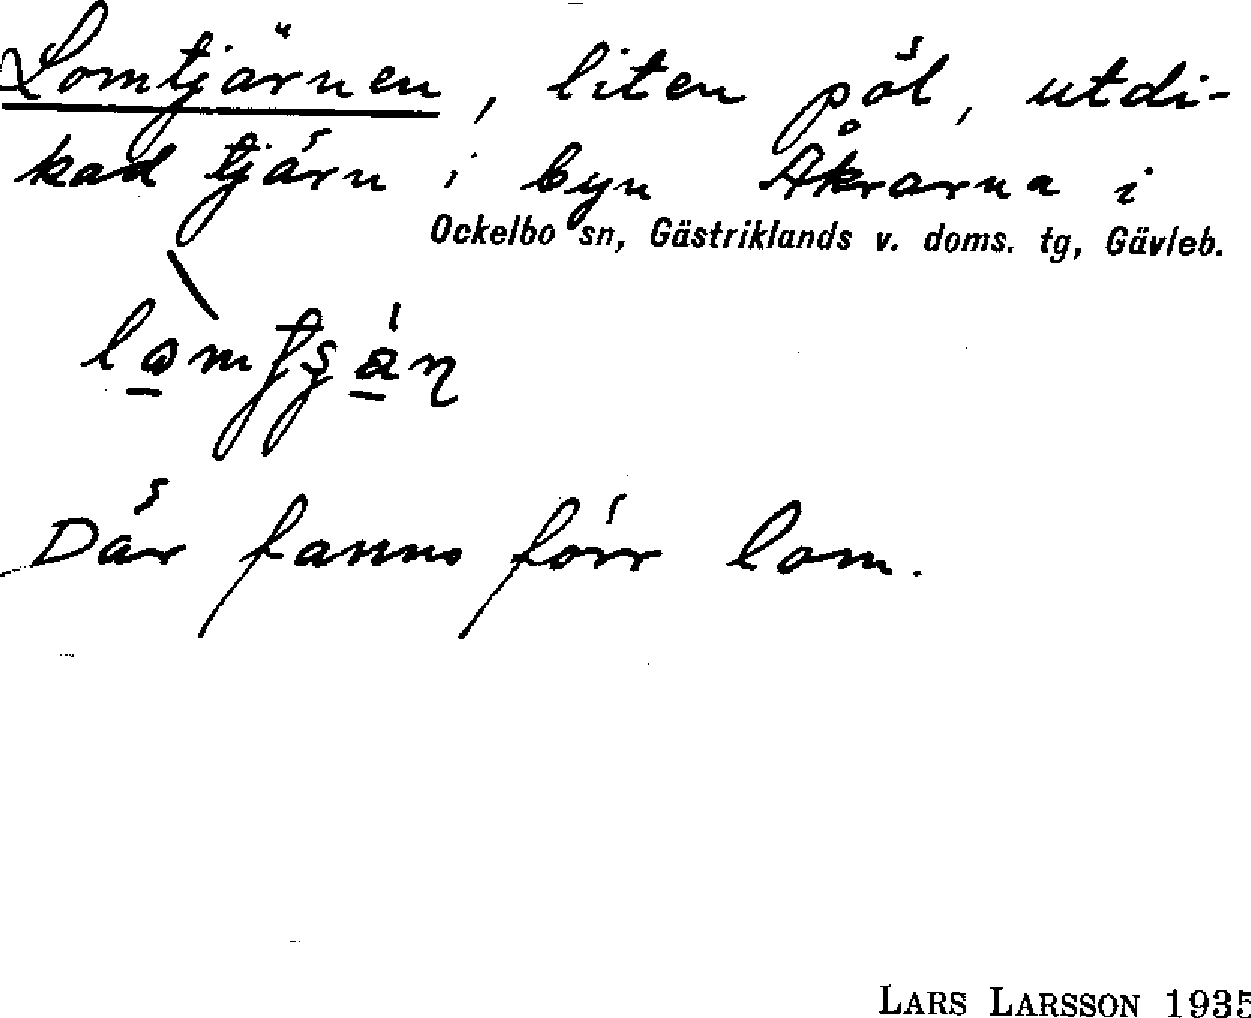 Lomtjärnen, liten pöl, utdi-
kad tjärn i byn Åkrarna i
Ockelbo sn, Gästriklands v. doms. tg, Gävleb.
Där fanns förr lom.
LARS LARSSON 1935